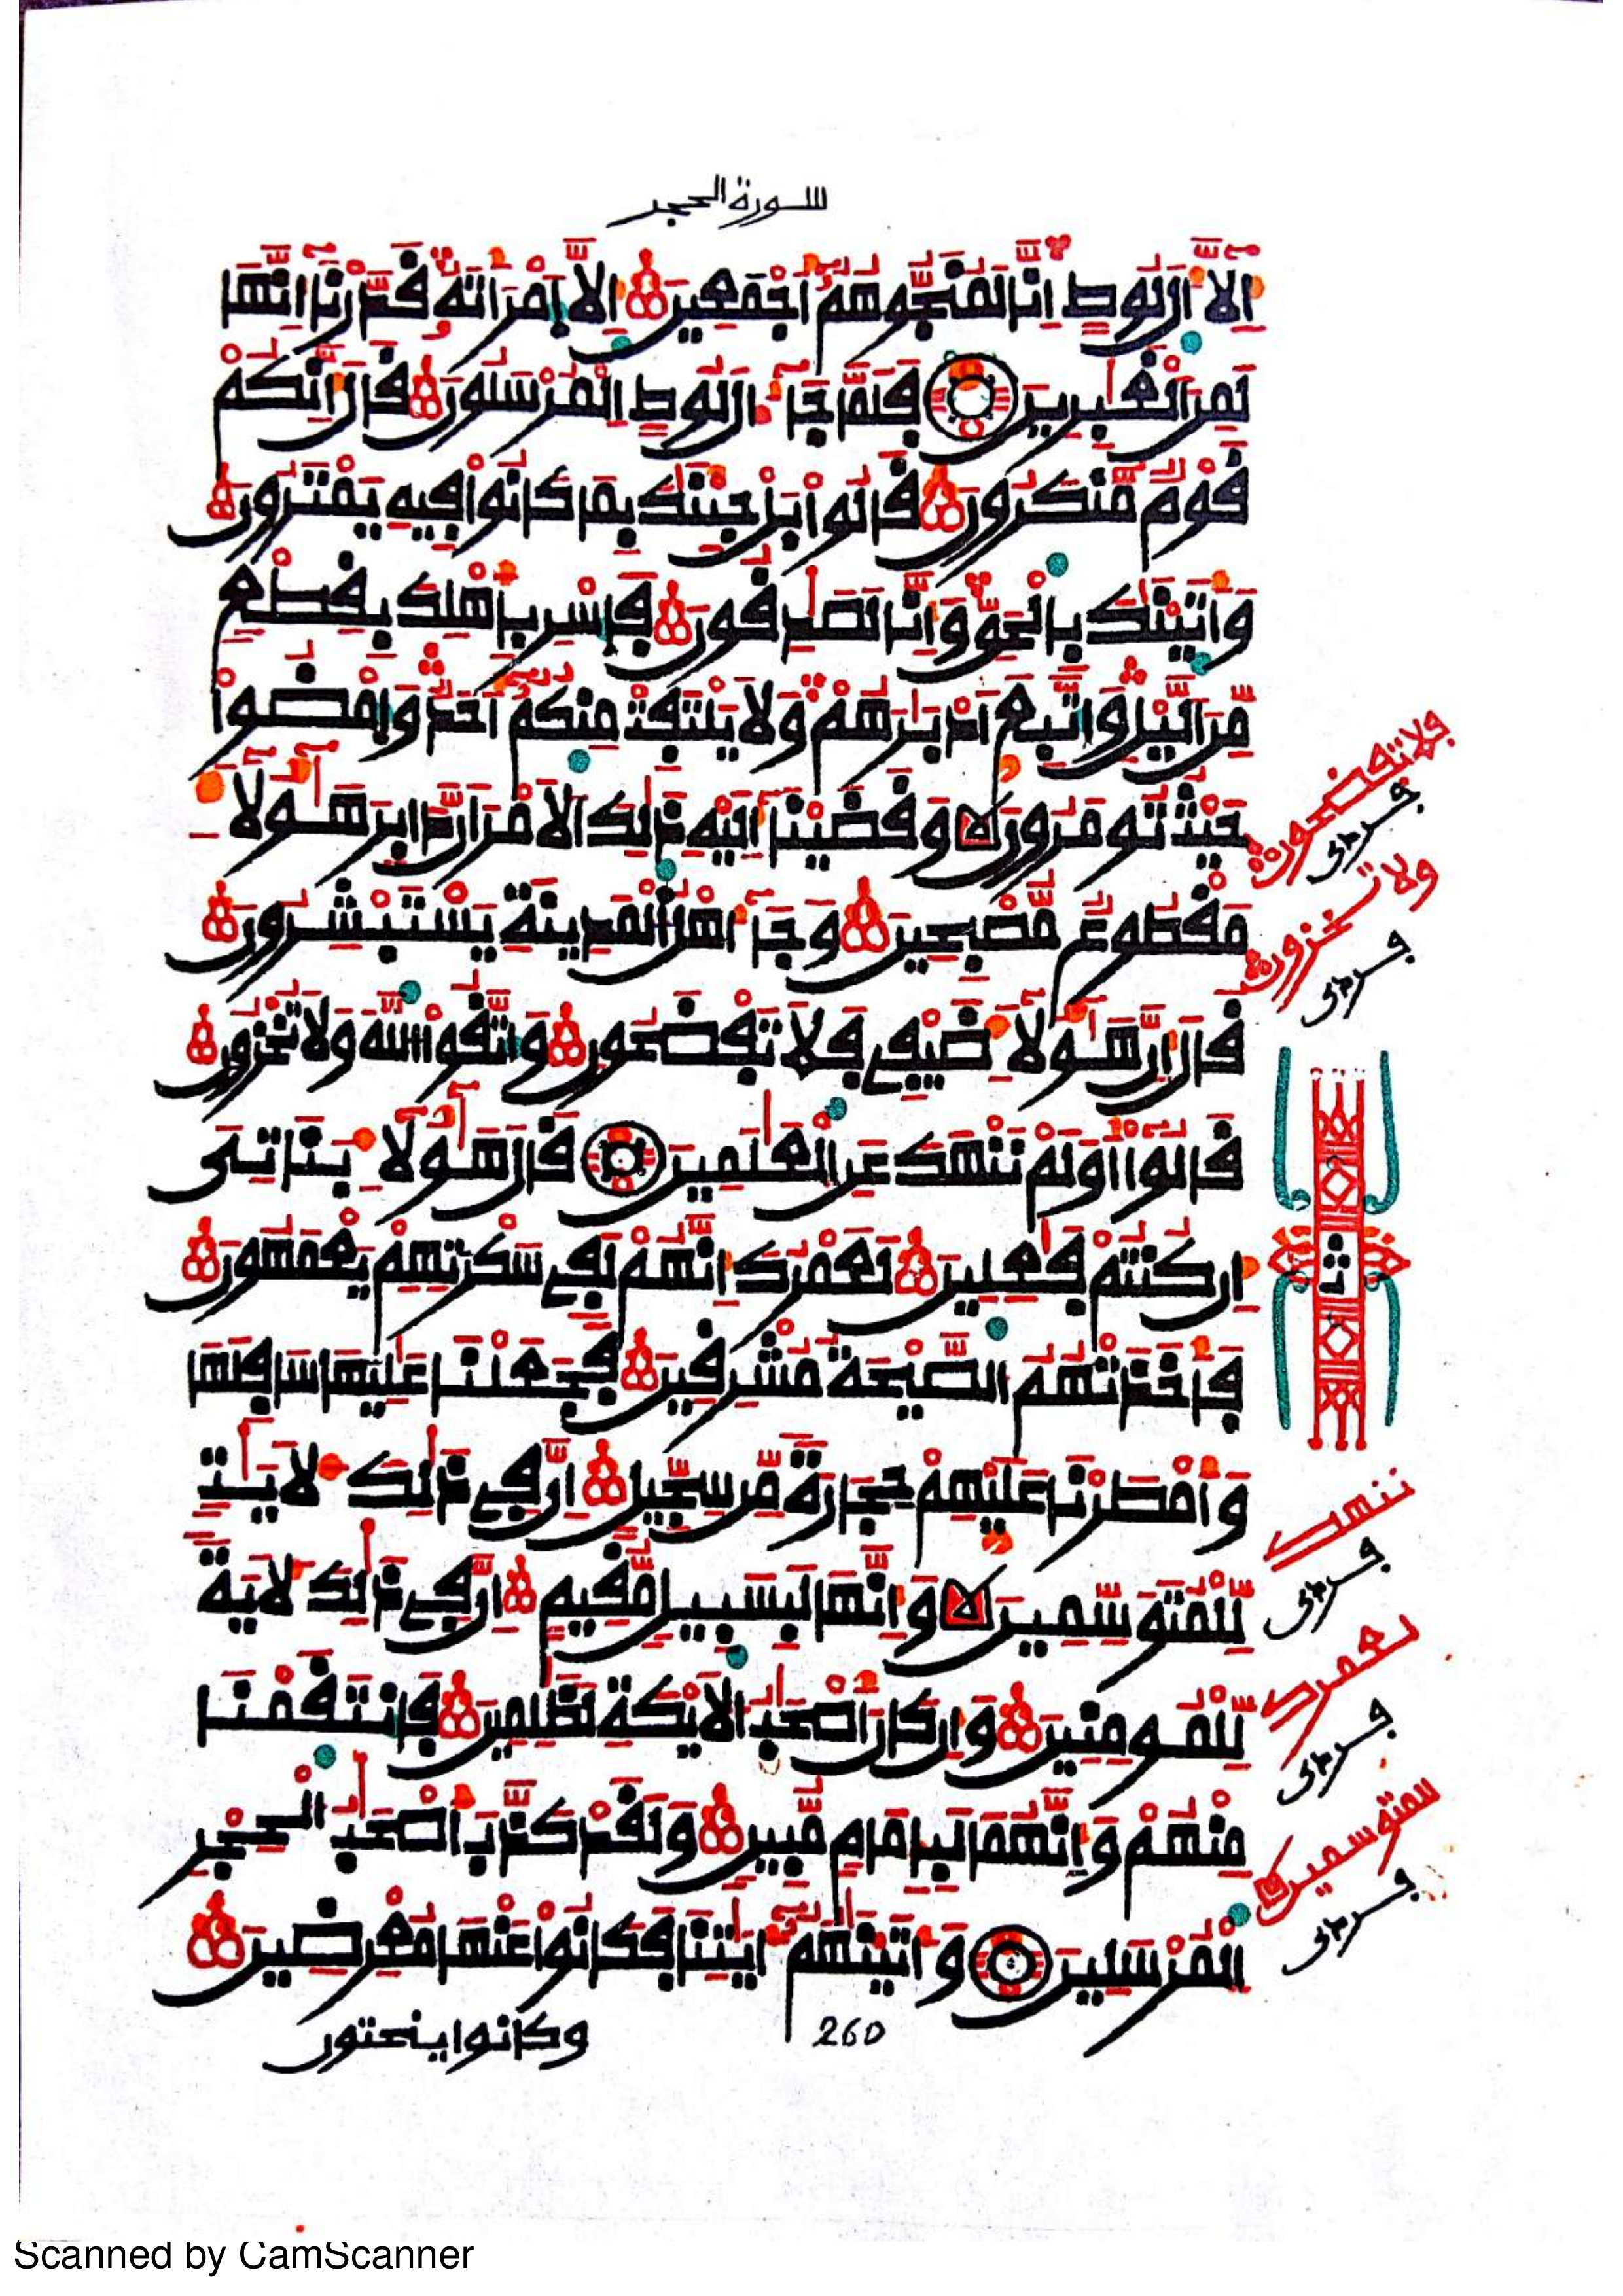 سورة الحجر
اِلَّآ ءَالَ لُوطٍ اِنَّا لَمُنَجُّوهُمُ أَجْمَعِينَ اِلَّا اَمْرَأَتَهُ قَدَّرْنَآ إِنَّهَا
لَمِنَ اَلْغَٰبِرِينَ فَلَمَّا جَآءَ الَ لُوطٍ اِلْمُرْسَلُونَ قَالَ إِنَّكُمْ
قَوْمٌ مُّنكَرُونَ قَالُواْ بَلْ جِئْنَٰكَ بِمَا كَانُواْ فِيهِ يَمْتَرُونَ
وَأَتَيْنَٰكَ بِالْحَقِّ وَإِنَّا لَصَٰدِقُونَ فَاسْرِ بِأَهْلِكَ بِقِطْعٍ
مِّنَ اَلَيْلِ وَاتَّبِعَ اَدْبَٰرَهُمْ وَلَا يَلْتَفِتْ مِنكُمُ أَحَدٌ وَامْضُواْ
حَيْثُ تُومَرُونَ وَقَضَيْنَآ إِلَيْهِ ذَٰلِكَ اَلَامْرَ أَنَّ دَابِرَ هَٰٓؤُلَآءِ
مَقْطُوعٌ مُّصْبِحِينَ وَجَآءَ اهْلُ اُلْمَدِينَةِ يَسْتَبْشِرُونَ
قَالَ إِنَّ هَٰٓؤُلَآءِ ضَيْفِے فَلَا تَفْضَحُونِ وَاتَّقُواْ اللَّهَ وَلَا تُخْزُونِ
قَالُواْ أَوَلَمْ نَنْهَكَ عَنِ اِلْعَٰلَمِينَ قَالَ هَٰٓؤُلَآءِ بَنَاتِى
إِن كُنتُمْ فَٰعِلِينَ لَعَمْرُكَ إِنَّهُمْ لَفِے سَكْرَتِهِمْ يَعْمَهُونَ
فَأَخَذَتْهُمُ اُلصَّيْحَةُ مُشْرِقِينَ فَجَعَلْنَا عَٰلِيَهَا سَافِلَهَا
وَأَمْطَرْنَا عَلَيْهِمْ حِجَارَةً مِّن سِجِّيلٍ إِنَّ فِے ذَٰلِكَ لَأَيَٰتٍ
لِّلْمُتَوَسِّمِينَ وَإِنَّهَا لَبِسَبِيلٍ مُّقِيمٍ إِنَّ فِے ذَٰلِكَ لَأَيَةً
لِّلْمُومِنِينَ وَإِن كَانَ أَصْحَٰبُ اُلَايْكَةِ لَظَٰلِمِينَ فَانتَقَمْنَا
مِنْهُمْ وَإِنَّهُمَا لَبِإِمَامٍ مُّبِينٍ وَلَقَدْ كَذَّبَ أَصْحَٰبُ اُلْحِجْرِ
اِلْمُرْسَلِينَ وَءَاتَيْنَٰهُمُ ءَايَٰتِنَا فَكَانُواْ عَنْهَا مُعْرِضِينَ
وكانوا ينحتون
260
فلا تفضحون
ولا تخزون
ث
ننهك
لعمرك
للمتوسمين
Scanned by CamScanner